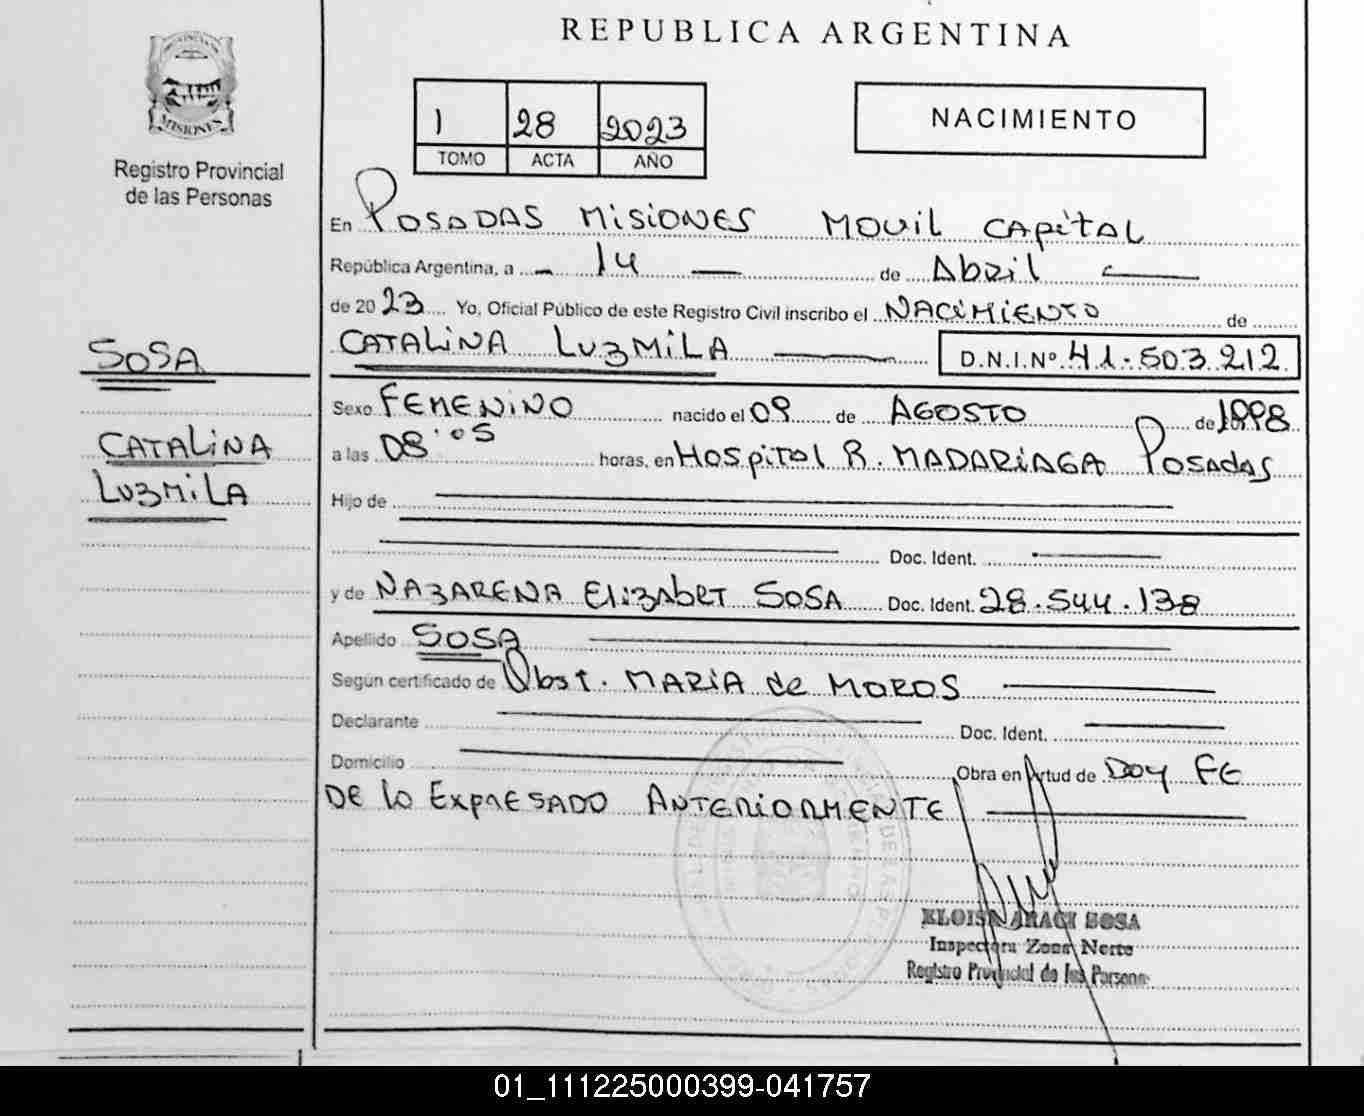 REPUBLICA ARGENTINA
MISIONES
Registro Provincial
de las Personas
1 28 2023
TOMO ACTA AÑO
NACIMIENTO
En POSADAS MISIONES MOVIL CAPITAL
República Argentina, a 14 de Abril
de 2023 Yo, Oficial Público de este Registro Civil inscribo el NACIMIENTO de
CATALINA LUZMILA D.N.I.Nº 41.503.212
SOSA
CATALINA
LUZMILA
Sexo FEMENINO nacido el 09 de AGOSTO de 1998
a las 08:05 horas, en HOSPITAL R. MADARIAGA POSADAS
Hijo de
Doc. Ident.
y de NAZARENA ELIZABET SOSA Doc. Ident. 28.544.138
Apellido SOSA
Según certificado de Obst. MARIA de MOROS
Declarante Doc. Ident.
Domicilio Obra en virtud de DOY FE
DE LO EXPRESADO ANTERIORMENTE
ELOISA ARACI SOSA
Inspectora Zona Norte
Registro Provincial de las Personas
01_111225000399-041757